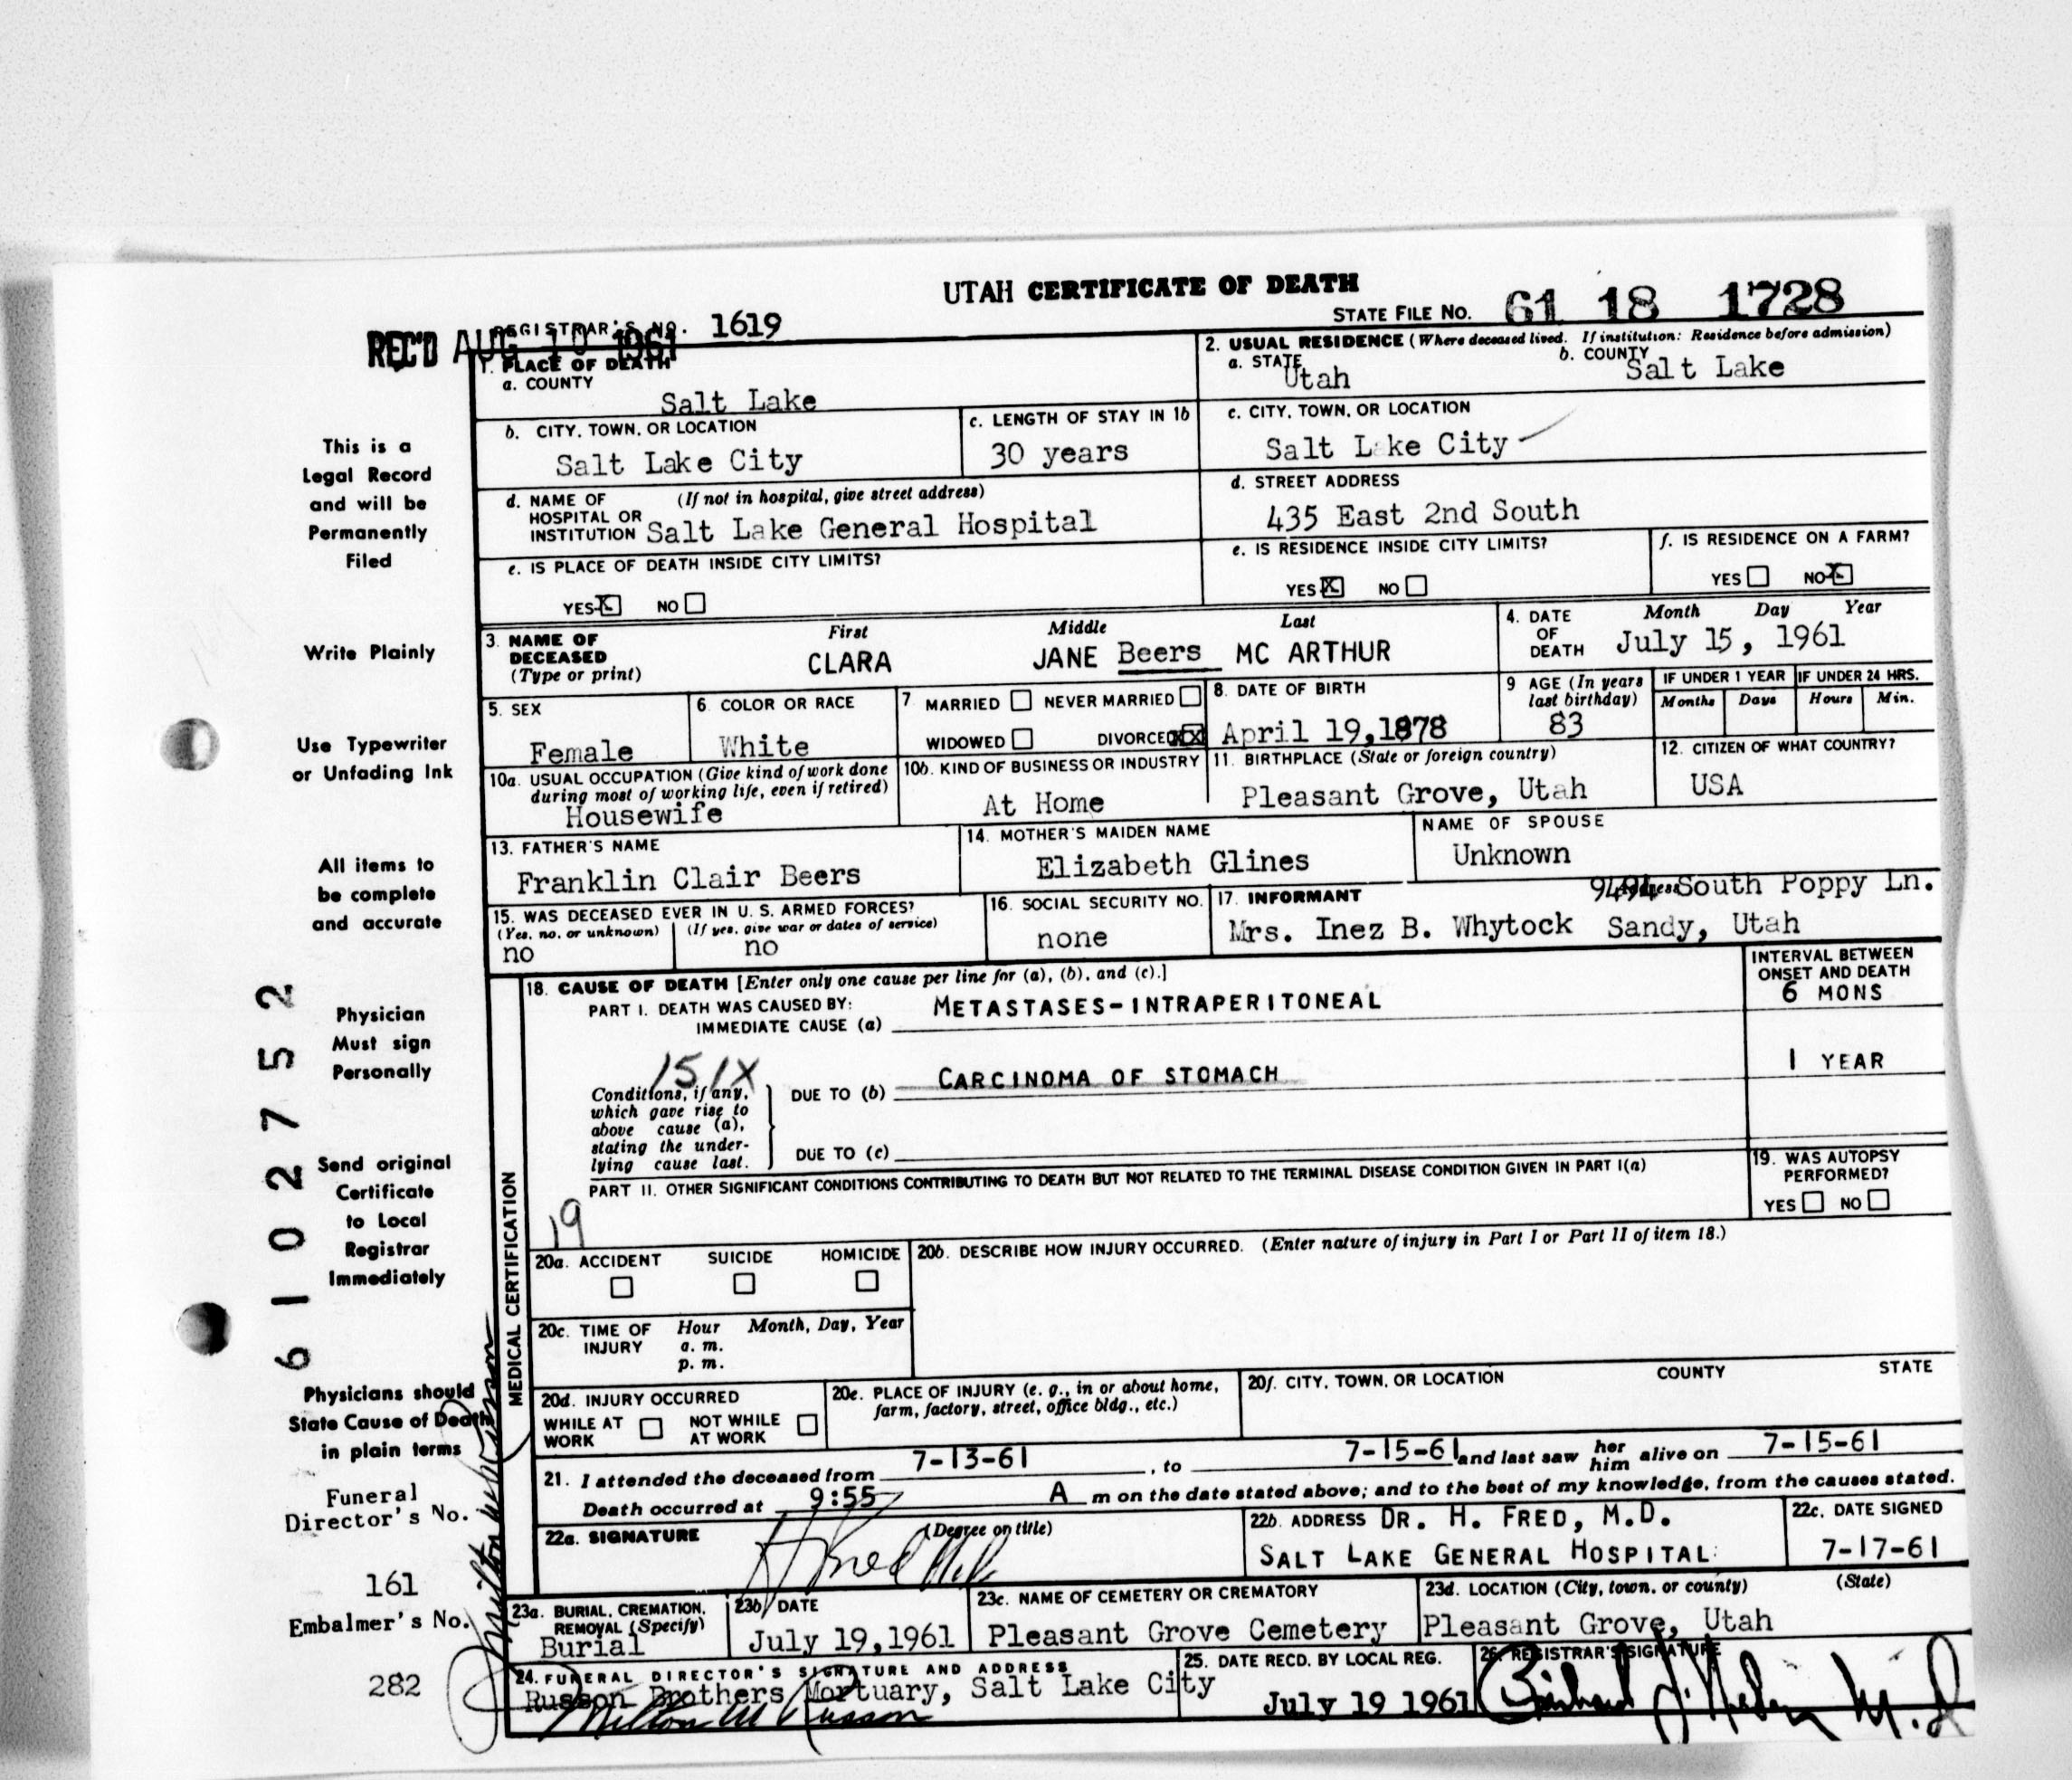 UTAH CERTIFICATE OF DEATH
STATE FILE NO. 61 18 1728
REC'D AUG 10 1961
REGISTRAR'S NO. 1619
1. PLACE OF DEATH
a. COUNTY
Salt Lake
2. USUAL RESIDENCE (Where deceased lived. If institution: Residence before admission)
a. STATE Utah
b. COUNTY Salt Lake
b. CITY, TOWN, OR LOCATION
Salt Lake City
c. LENGTH OF STAY IN 1b
30 years
c. CITY, TOWN, OR LOCATION
Salt Lake City
d. NAME OF HOSPITAL OR INSTITUTION (If not in hospital, give street address)
Salt Lake General Hospital
d. STREET ADDRESS
435 East 2nd South
e. IS PLACE OF DEATH INSIDE CITY LIMITS?
YES X NO
e. IS RESIDENCE INSIDE CITY LIMITS?
YES X NO
f. IS RESIDENCE ON A FARM?
YES NO X
3. NAME OF DECEASED (Type or print)
First Middle Last
CLARA JANE Beers MC ARTHUR
4. DATE OF DEATH
Month Day Year
July 15, 1961
5. SEX
Female
6. COLOR OR RACE
White
7. MARRIED NEVER MARRIED
WIDOWED DIVORCED XX
8. DATE OF BIRTH
April 19,1878
9 AGE (In years last birthday)
83
IF UNDER 1 YEAR
Months Days
IF UNDER 24 HRS.
Hours Min.
10a. USUAL OCCUPATION (Give kind of work done during most of working life, even if retired)
Housewife
10b. KIND OF BUSINESS OR INDUSTRY
At Home
11. BIRTHPLACE (State or foreign country)
Pleasant Grove, Utah
12. CITIZEN OF WHAT COUNTRY?
USA
13. FATHER'S NAME
Franklin Clair Beers
14. MOTHER'S MAIDEN NAME
Elizabeth Glines
NAME OF SPOUSE
Unknown
15. WAS DECEASED EVER IN U. S. ARMED FORCES?
(Yes, no, or unknown) (If yes, give war or dates of service)
no no
16. SOCIAL SECURITY NO.
none
17. INFORMANT Address
9494 South Poppy Ln.
Mrs. Inez B. Whytock Sandy, Utah
18. CAUSE OF DEATH [Enter only one cause per line for (a), (b), and (c).]
INTERVAL BETWEEN ONSET AND DEATH
PART I. DEATH WAS CAUSED BY:
IMMEDIATE CAUSE (a) METASTASES-INTRAPERITONEAL
6 MONS
151X
Conditions, if any, which gave rise to above cause (a), stating the underlying cause last.
DUE TO (b) CARCINOMA OF STOMACH
1 YEAR
DUE TO (c)
PART II. OTHER SIGNIFICANT CONDITIONS CONTRIBUTING TO DEATH BUT NOT RELATED TO THE TERMINAL DISEASE CONDITION GIVEN IN PART I(a)
19
19. WAS AUTOPSY PERFORMED?
YES NO
20a. ACCIDENT SUICIDE HOMICIDE
20b. DESCRIBE HOW INJURY OCCURRED. (Enter nature of injury in Part I or Part II of item 18.)
20c. TIME OF INJURY
Hour Month, Day, Year
a. m.
p. m.
20d. INJURY OCCURRED
WHILE AT WORK NOT WHILE AT WORK
20e. PLACE OF INJURY (e. g., in or about home, farm, factory, street, office bldg., etc.)
20f. CITY, TOWN, OR LOCATION COUNTY STATE
21. I attended the deceased from 7-13-61, to 7-15-61 and last saw her him alive on 7-15-61
Death occurred at 9:55 A m on the date stated above; and to the best of my knowledge, from the causes stated.
22a. SIGNATURE (Degree or title)
H Fred
22b. ADDRESS DR. H. FRED, M.D.
SALT LAKE GENERAL HOSPITAL
22c. DATE SIGNED
7-17-61
23a. BURIAL, CREMATION, REMOVAL (Specify)
Burial
23b DATE
July 19,1961
23c. NAME OF CEMETERY OR CREMATORY
Pleasant Grove Cemetery
23d. LOCATION (City, town, or county) (State)
Pleasant Grove, Utah
24. FUNERAL DIRECTOR'S SIGNATURE AND ADDRESS
Russon Brothers Mortuary, Salt Lake City
Milton W Russon
25. DATE RECD. BY LOCAL REG.
July 19 1961
26. REGISTRAR'S SIGNATURE
M.D
MEDICAL CERTIFICATION
This is a
Legal Record
and will be
Permanently
Filed
Write Plainly
Use Typewriter
or Unfading Ink
All items to
be complete
and accurate
Physician
Must sign
Personally
Send original
Certificate
to Local
Registrar
Immediately
Physicians should
State Cause of Death
in plain terms
Funeral
Director's No.
161
Embalmer's No.
282
6102752
Milton W Russon